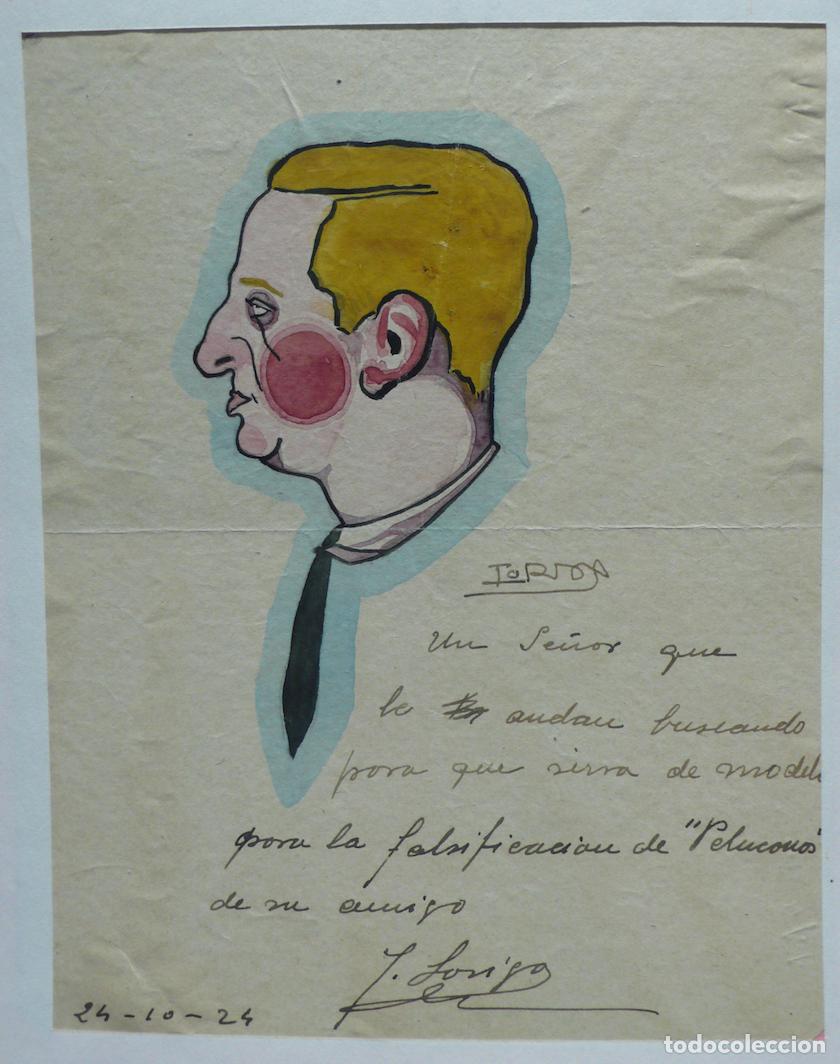 Un Señor que
lo andan buscando
para que sirva de model
para la falsificacion de "Peluconas"
de su amigo
J. Loriga
24-10-24
todocoleccion